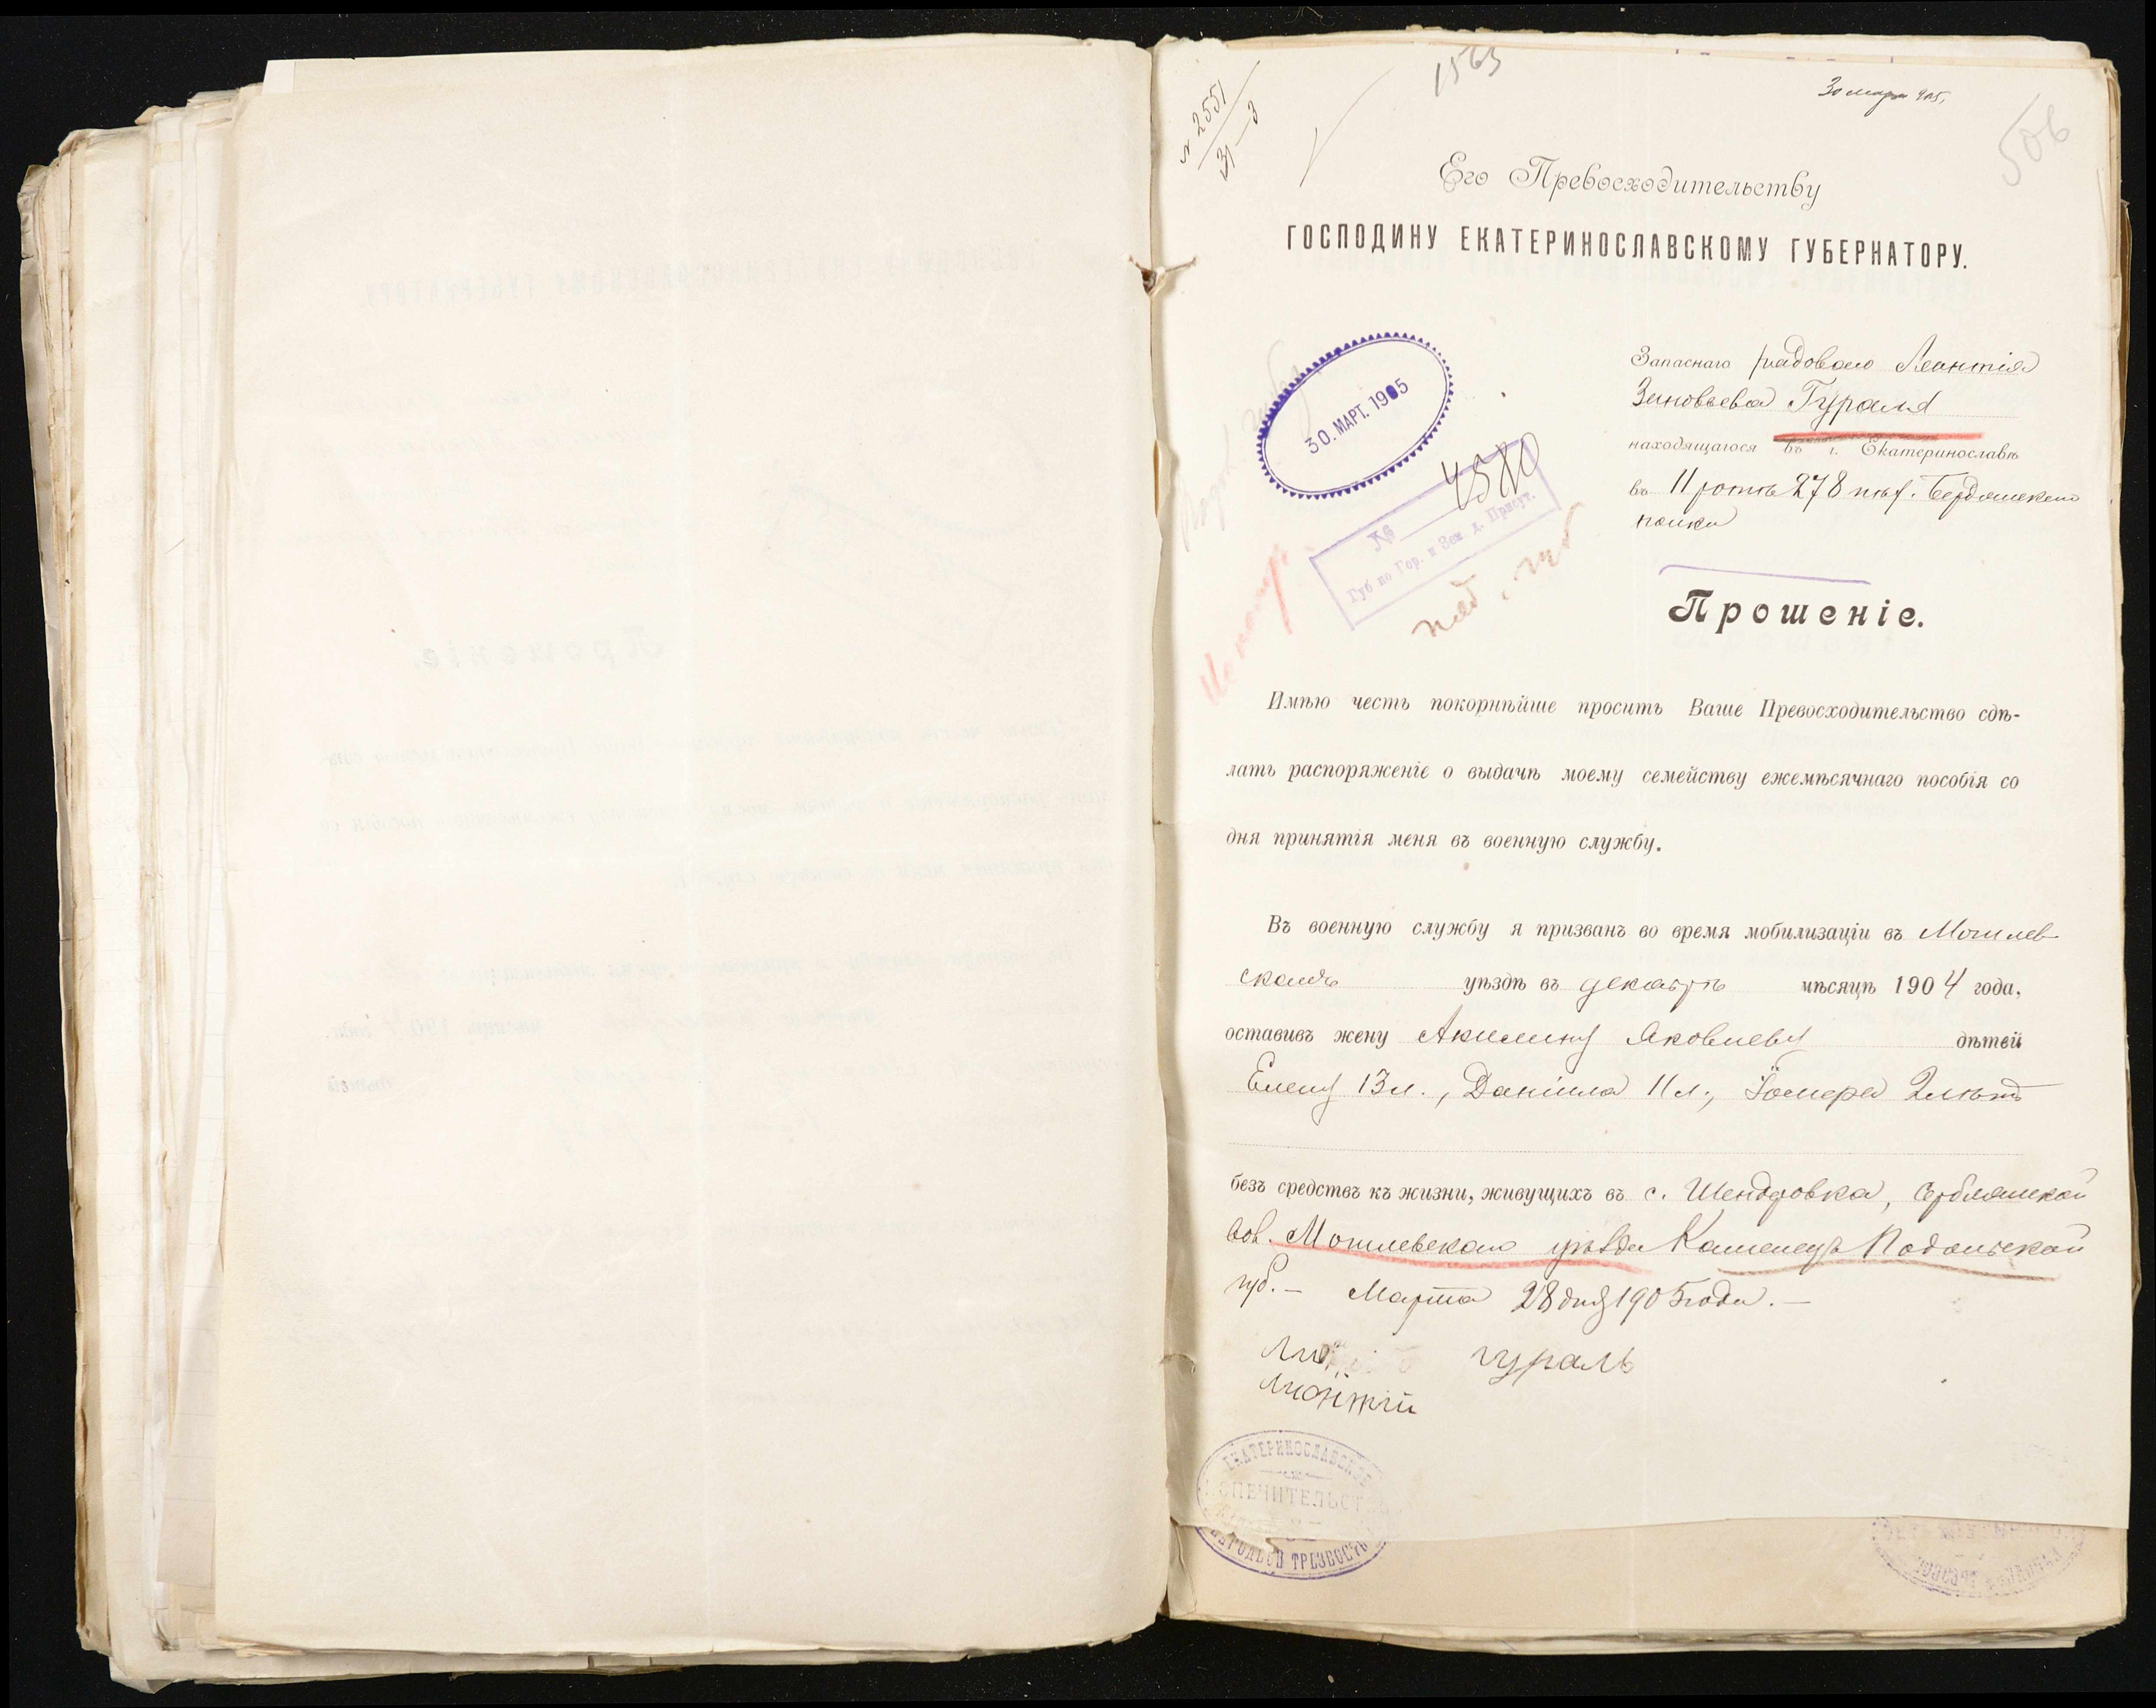 № 2551
31–3
1563
30 марта 905.
506
Его Превосходительству
ГОСПОДИНУ ЕКАТЕРИНОСЛАВСКОМУ ГУБЕРНАТОРУ.
30. МАРТ. 1905
4580
№
Губ по Гор. и Зем. д. Присут.
Запаснаго рядового Леонтія
Зиновьева Гураля
находящагося въ г. Екатеринославѣ
въ 11 ротѣ 278 пѣх.
полка
Прошеніе.
Имѣю честь покорнѣйше просить Ваше Превосходительство сдѣ-
лать распоряженіе о выдачѣ моему семейству ежемѣсячнаго пособія со
дня принятія меня въ военную службу.
Въ военную службу я призванъ во время мобилизаціи въ Могилев
скомъ уѣздѣ въ декабрѣ мѣсяцѣ 1904 года,
оставивъ жену Акилину Яковлеву дѣтей
Елену 13 л., Даніила 11 л., 2 лѣтъ
безъ средствъ къ жизни, живущихъ въ с. Шендеровка,
вол. Могилевскаго уѣзда Каменецъ Подольской
губ. – Марта 28 дня 1905 года. –
гураль
Лионтій
ЕКАТЕРИНОСЛАВСКОЕ
ПОПЕЧИТЕЛЬСТВО
НАРОДНОЙ ТРЕЗВОСТИ